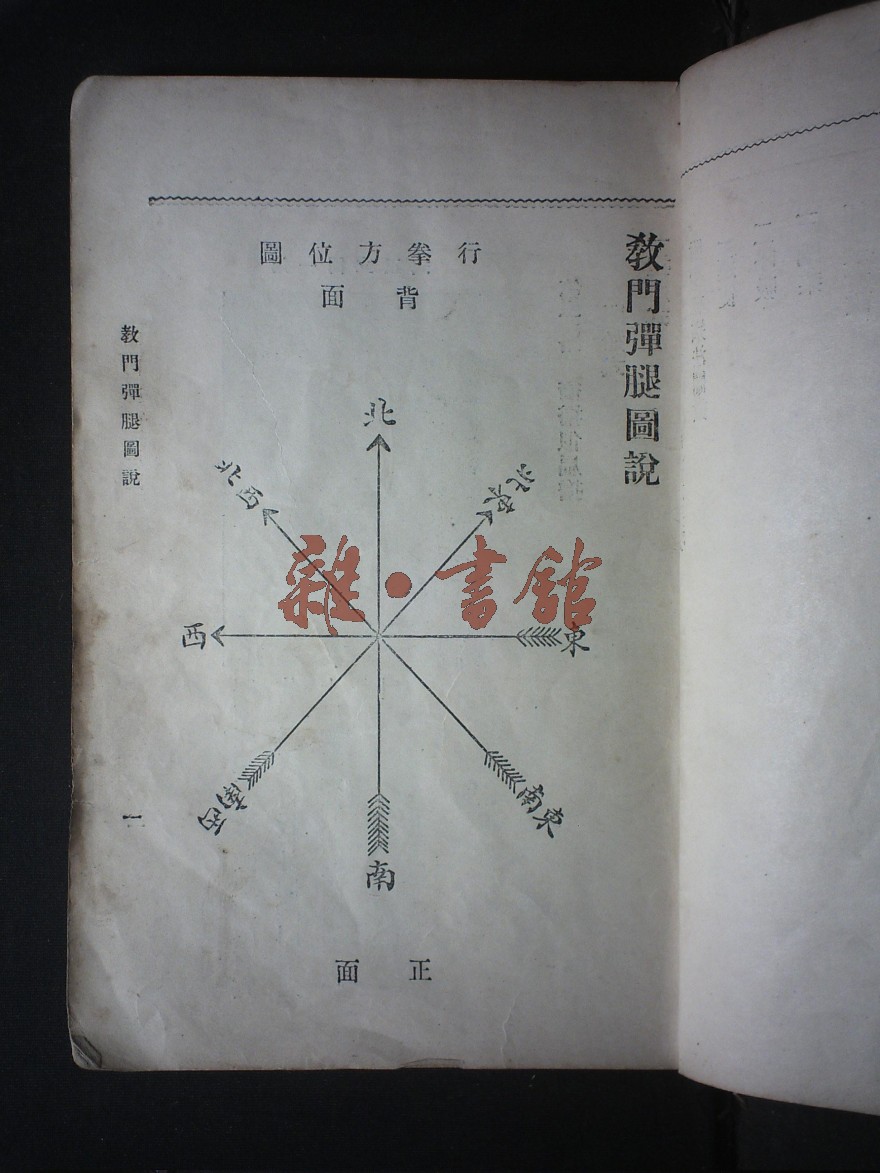 教門彈腿圖說
行拳方位圖
背面
北
東北
西北
雜·書舘
東
西
東南
西南
南
正面
教門彈腿圖說
一